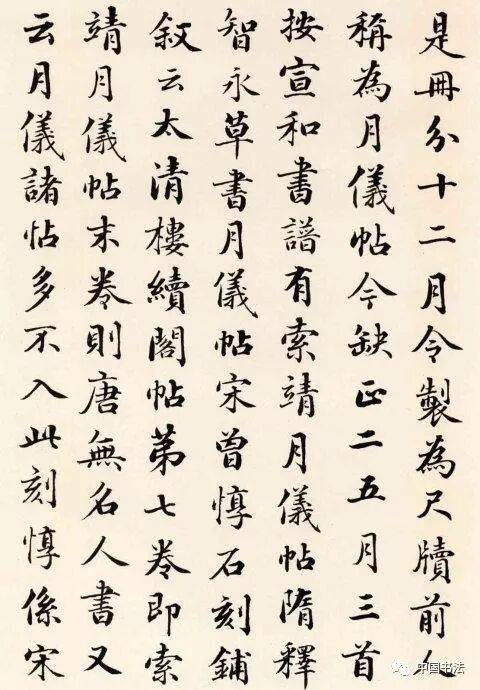 是冊分十二月令製為尺牘前人
稱為月儀帖今缺正二五月三首
按宣和書譜有索靖月儀帖隋釋
智永草書月儀帖宋曾惇石刻鋪
敘云太清樓續閣帖第七卷即索
靖月儀帖末卷則唐無名人書又
云月儀諸帖多不入此刻惇係宋
中国书法